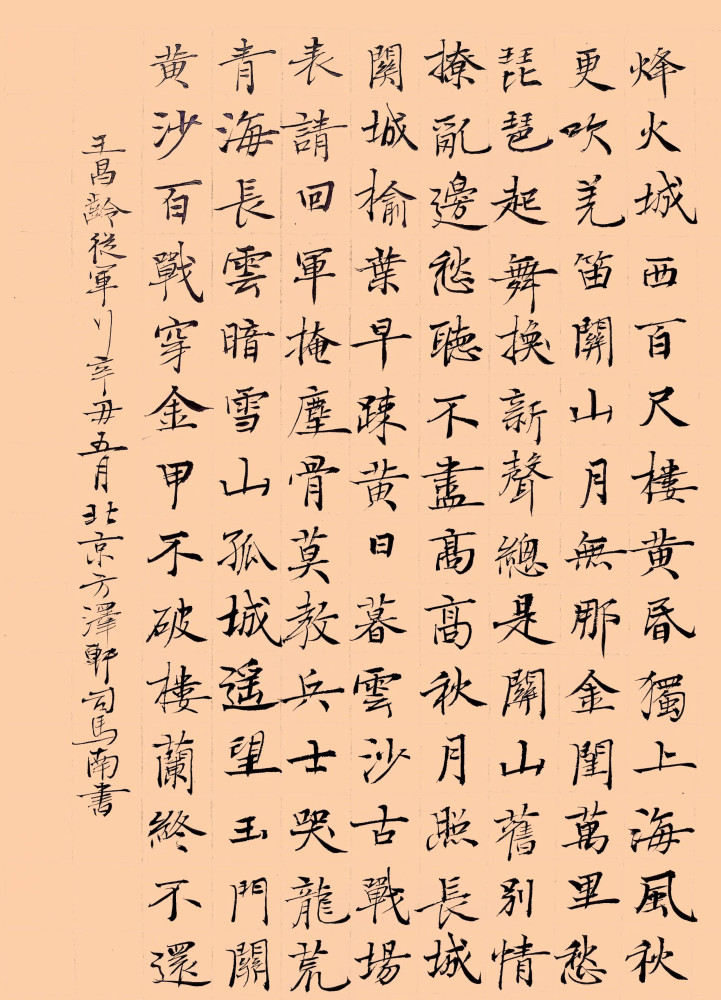 烽火城西百尺樓黄昏獨上海風秋
更吹羌笛關山月無那金閨萬里愁
琵琶起舞換新聲總是關山舊别情
撩亂邊愁聽不盡高高秋月照長城
關城榆葉早踈黄日暮雲沙古戰場
表請回軍掩塵骨莫教兵士哭龍荒
青海長雲暗雪山孤城遥望玉門關
黄沙百戰穿金甲不破樓蘭終不還
王昌齡從軍行辛丑五月北京方澤軒司馬南書